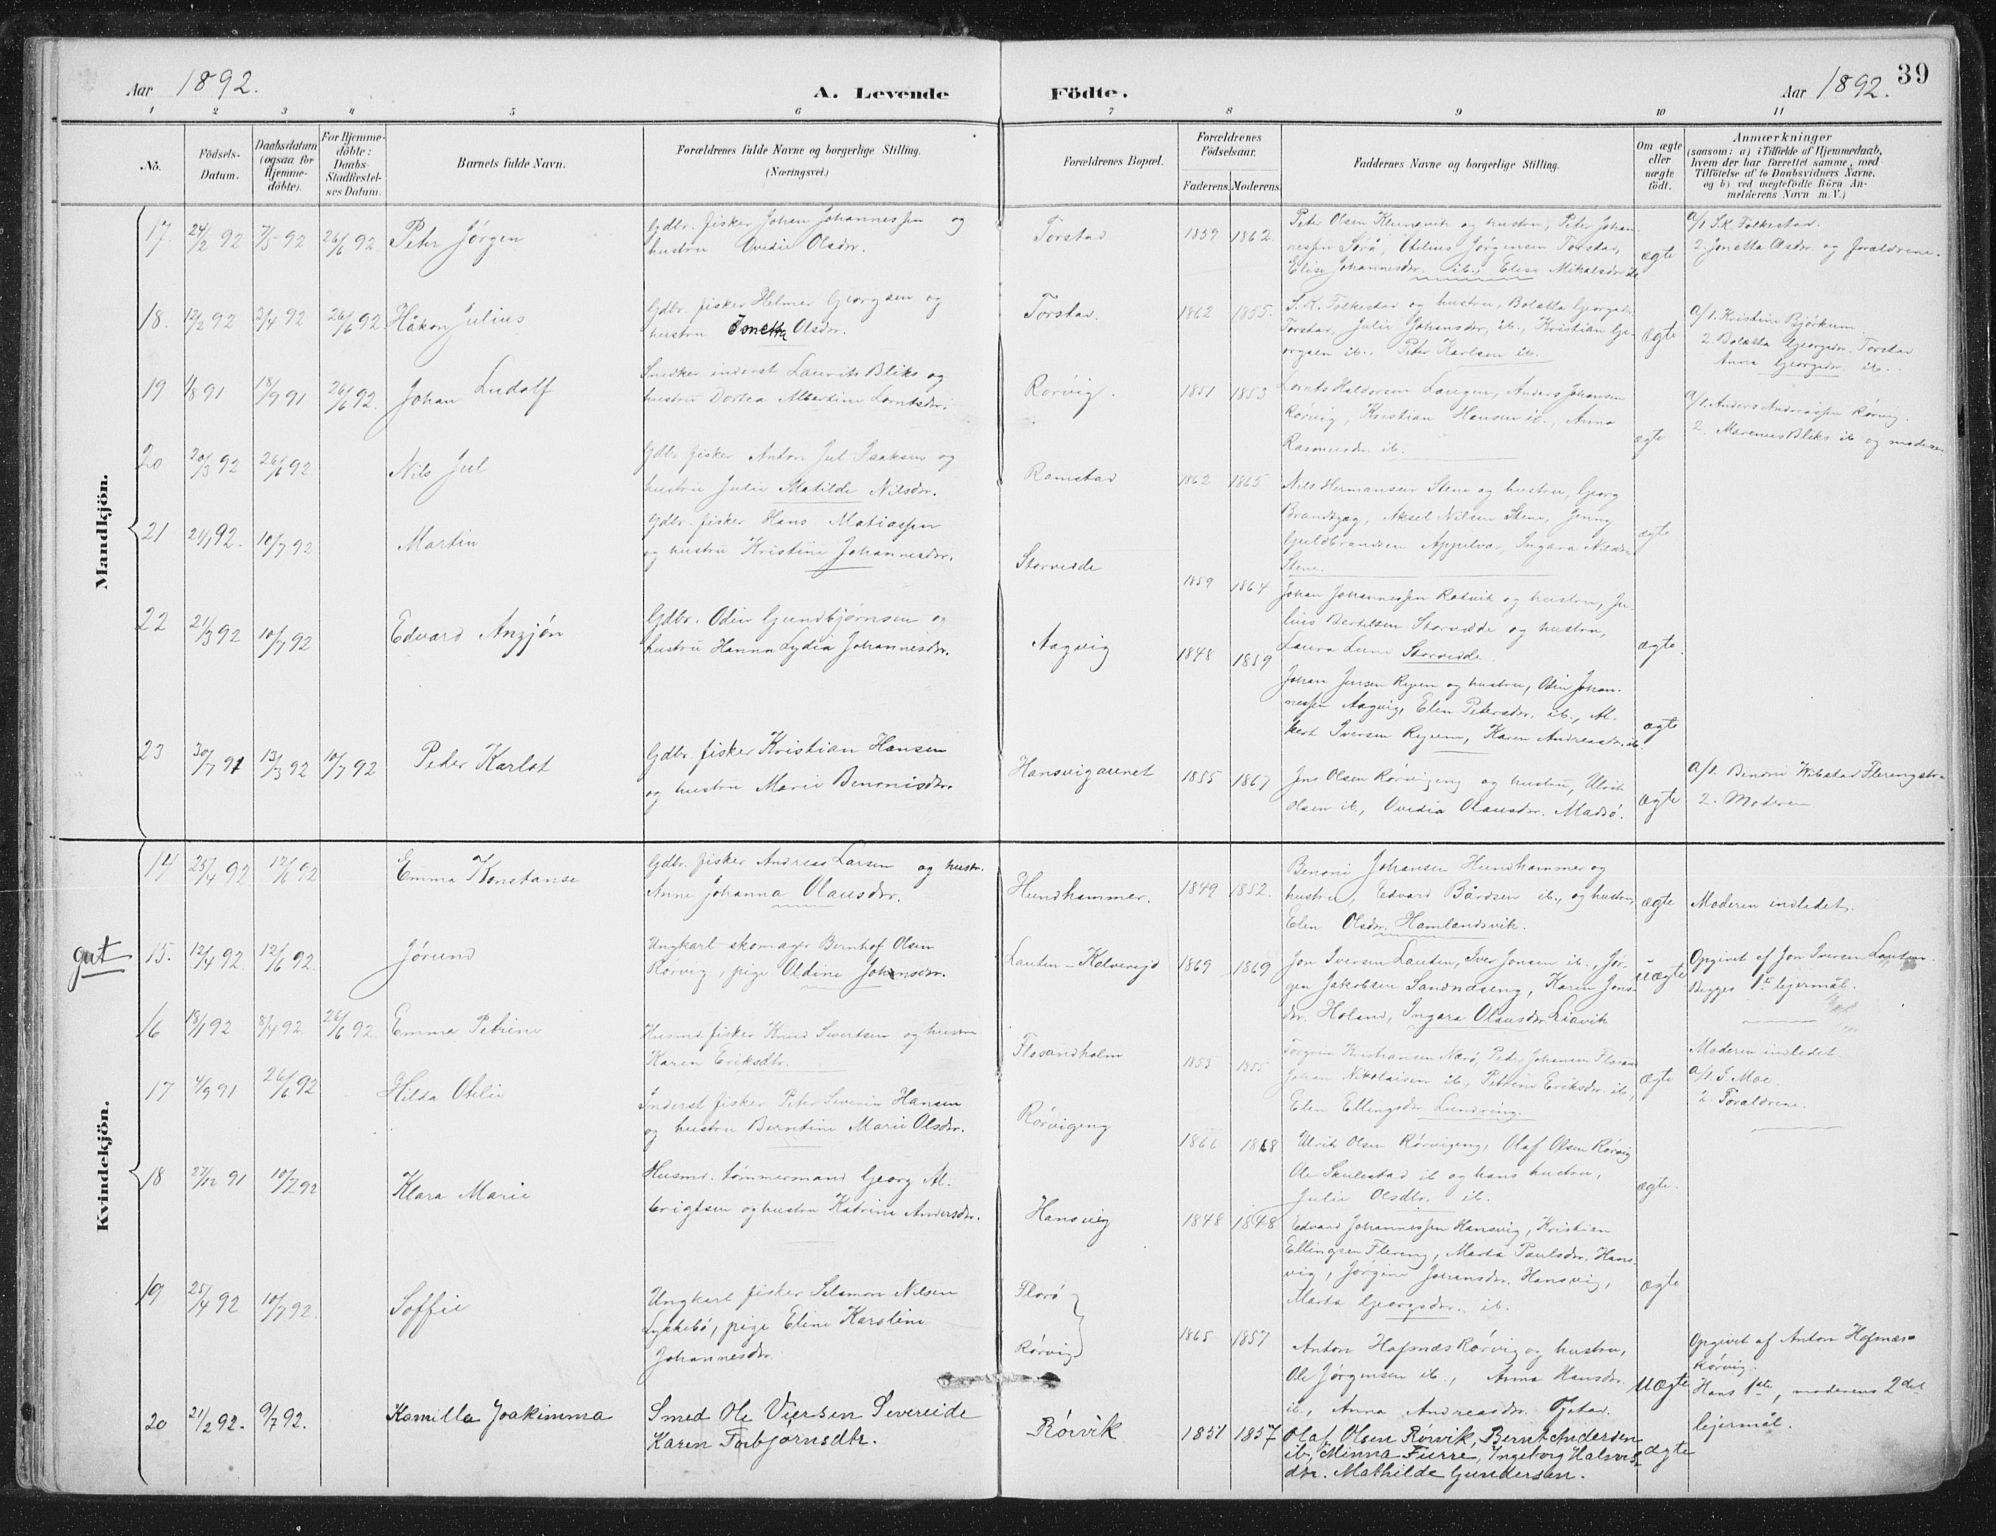 Aar 1892.
A. Levende Födte.
Aar 1892.
39
1 2 3 4 5 6 7 8 9 10 11
No.
Födsels-Datum.
Daabsdatum (ogsaa for Hjemmedöbte).
For Hjemmedöbte: Daabs-Stadfæstelses Datum.
Barnets fulde Navn.
Forældrenes fulde Navne og borgerlige Stilling.
(Næringsvei.)
Forældrenes Bopæl.
Forældrenes Födselsaar.
Faderens. Moderens.
Faddernes Navne og borgerlige Stilling.
Om ægte eller uægte födt.
Anmærkninger
(saasom: a) i Tilfælde af Hjemmedaab, hvem der har forrettet samme, med Tilföielse af to Daabsvidners Navne, og b) ved uægtefödte Börn Anmelderens Navn m. V.)
Mandkjön.
17. 24/2 92 7/5 92 26/6 92 Peter Jørgen
Gdbr. fisker Johan Johannessen og
hustru Ovedie Olsdr.
Torstad 1859 1862
Peter Olsen og hustru, Peter Johan-
nessen Sørø, Otelius Jørgensen Torstad,
Elise Johannesdr. ib., Elise Mikalsdr. ib.
ægte
a/1. S.K. Folkestad.
2. Jonetta Olsdr og forældrene.
18. 12/2 92 3/4 92 26/6 92 Håkon Julius
Gdbr. fisker Helmer Georgsen og
hustru Jonetta Olsdr.
Torstad. 1862 1855.
S. K. Folkestad og hustru, Bolætta Georgsdr.
Torstad, Julie Johansdr. ib., Kristian Ge-
orgsen ib., Peter Karlsen ib.
ægte
a/1. Kristine Bjørkum.
2. Bolætta Georgsdr. Torstad
Anna Georgsdr. ib.
19 1/8 91 18/9 91 26/6 92. Johan Ludolf
Snedker inderst Laurits Bliks og
hustru Dortea Albertine Lorntsdr.
Rørvig. 1851 1853
Lornts Haldorsen Laugen, Anders Johansen
Rørvig, Kristian Hansen ib., Anna
Rasmusdr. ib.
ægte
a/1. Anders Andreassen Rørvig
2. Marenus Bliks ib og moderen
20 20/3 92 26/6 92 Nils Jul
Gdbr. fisker Anton Jul Isaksen og
hustru Julie Matilde Nilsdr.
Ramstad 1862 1865
Nils Hermansen Stene og hustru, Georg
Brandtzæg, Aksel Nilsen Stene, Jenny
Guldbrandsen Appelvær, Ingara Nilsdr.
Stene.
ægte
21 24/1 92. 10/7 92 Martin
Gdbr. fisker Hans Matiassen
og hustru Kristine Johannesdr.
Storveidde 1859 1864
Johan Johannessen Rødvik og hustru, Ju-
lius Bertelsen Storveidde og hustru,
Laura Storveidde.
ægte.
22 21/3 92 10/7 92 Edvard Anzjøn
Gdbr. Odin Gundbjørnsen og
hustru Hanna Lydia Johannesdr.
Aagvig 1848 1859
Johan Jensen og hustru, Odin Johan-
nessen Aagvig, Elen Petersdr. ib., Al-
bert Iversen, Karen Andreasdr. ib.
ægte
23 30/7 91 13/3 92 10/7 92 Peder Karlot
Gdbr. fisker Kristian Hansen
og hustru Marie Benonisdr.
Hansvigaunet 1855 1867
Jens Olsen Rørvigeng og hustru, Ulrik
Olsen ib., Ovedia Olausdr. Madsø.
ægte
a/1. Benoni Wibstad
2. Moderen
Kvindekjön.
14 25/4 92 12/6 92 Emma Konstanse
Gdbr. fisker Andreas Larsen og hustr.
Anne Johanna Olausdr.
Hundhammer. 1849 1852.
Benoni Johansen Hundhammer og
hustru, Edvard Bårdsen ib., og hustru,
Elen Olsdr. Hamlandsvik.
ægte
Moderen indledet.
gut
15. 12/4 92. 12/6 92. Jørund
Ungkarl skomager Bernhof Olsen
Rørvig, pige Oldine Johnsdr.
Lauten - Kolvereid 1869 1869
Jon Iversen Lauten, Iver Jonsen ib., Jør-
gen Jakobsen Sandnæseng, Karen Jons-
dr. Holand, Ingara Olausdr.
uægte
Opgivet af Jon Iversen Lauten.
Begges 1ste lejermål.
16 18/1 92 8/4 92 26/6 92. Emma Petrine
Husmd. fisker Knud Sivertsen og hustru
Karen Eriksdtr.
Flosandholm 1855 1855
Torgrim Kristiansen Nærø, Peder Johansen
Johan Nikolaisen ib., Petrine Eriksdr. ib.,
Elen Ellingsdr.
ægte
Moderen indledet.
a/1 J. Moe.
2. Forældrene.
17 4/9 91 26/6 92 Hilda Otelie
Inderst fisker Peter Severin Hansen
og hustru Berntine Marie Olsdr.
Rørvigeng 1866 1868
Ulrik Olsen Rørvigeng, Olaf Olsen Rørvig
Ole Skulestad ib og hans hustru,
Julie Olsdtr. ib.
ægte.
18 27/12 91 10/7 92 Klara Marie
Husmd. tømmermand Georg Al-
brigtsen og hustru Katrine Andersdr.
Hansvig 1848 1848
Edvard Johannessen Hansvig, Kristian
Ellingsen Flereng, Marta Paulsdr. Hans-
vig, Jørgine Johansdr. Hansvig,
Marta Georgsdr. ib.
ægte
19 25/4 92 10/7 92. Soffie
Ungkarl fisker Salamon Nilsen
Lykkebø, pige Eline Karstine
Johannesdr.
Florø
Rørvig
1865 1857
Anton Hofmæs Rørvig og hustru,
Ole Jørgensen ib., Anna Hansdr.
ib., Anna Andreasdr.
uægte
Opgivet af Anton Hofmæs
Rørvig.
Hans 1ste, moderens 2det
lejermål.
20 21/2 92. 9/7 92. Kamilla Joakimma
Smed Ole Viersen Severeide
Karen Torbjørnsdtr.
Rörvik 1851 1857
Olaf Olsen Rörvik, Bernt Andersen
ib, Minna Furre, Ingeborg Halvors-
dtr. Mathilde Gundersen.
ægte